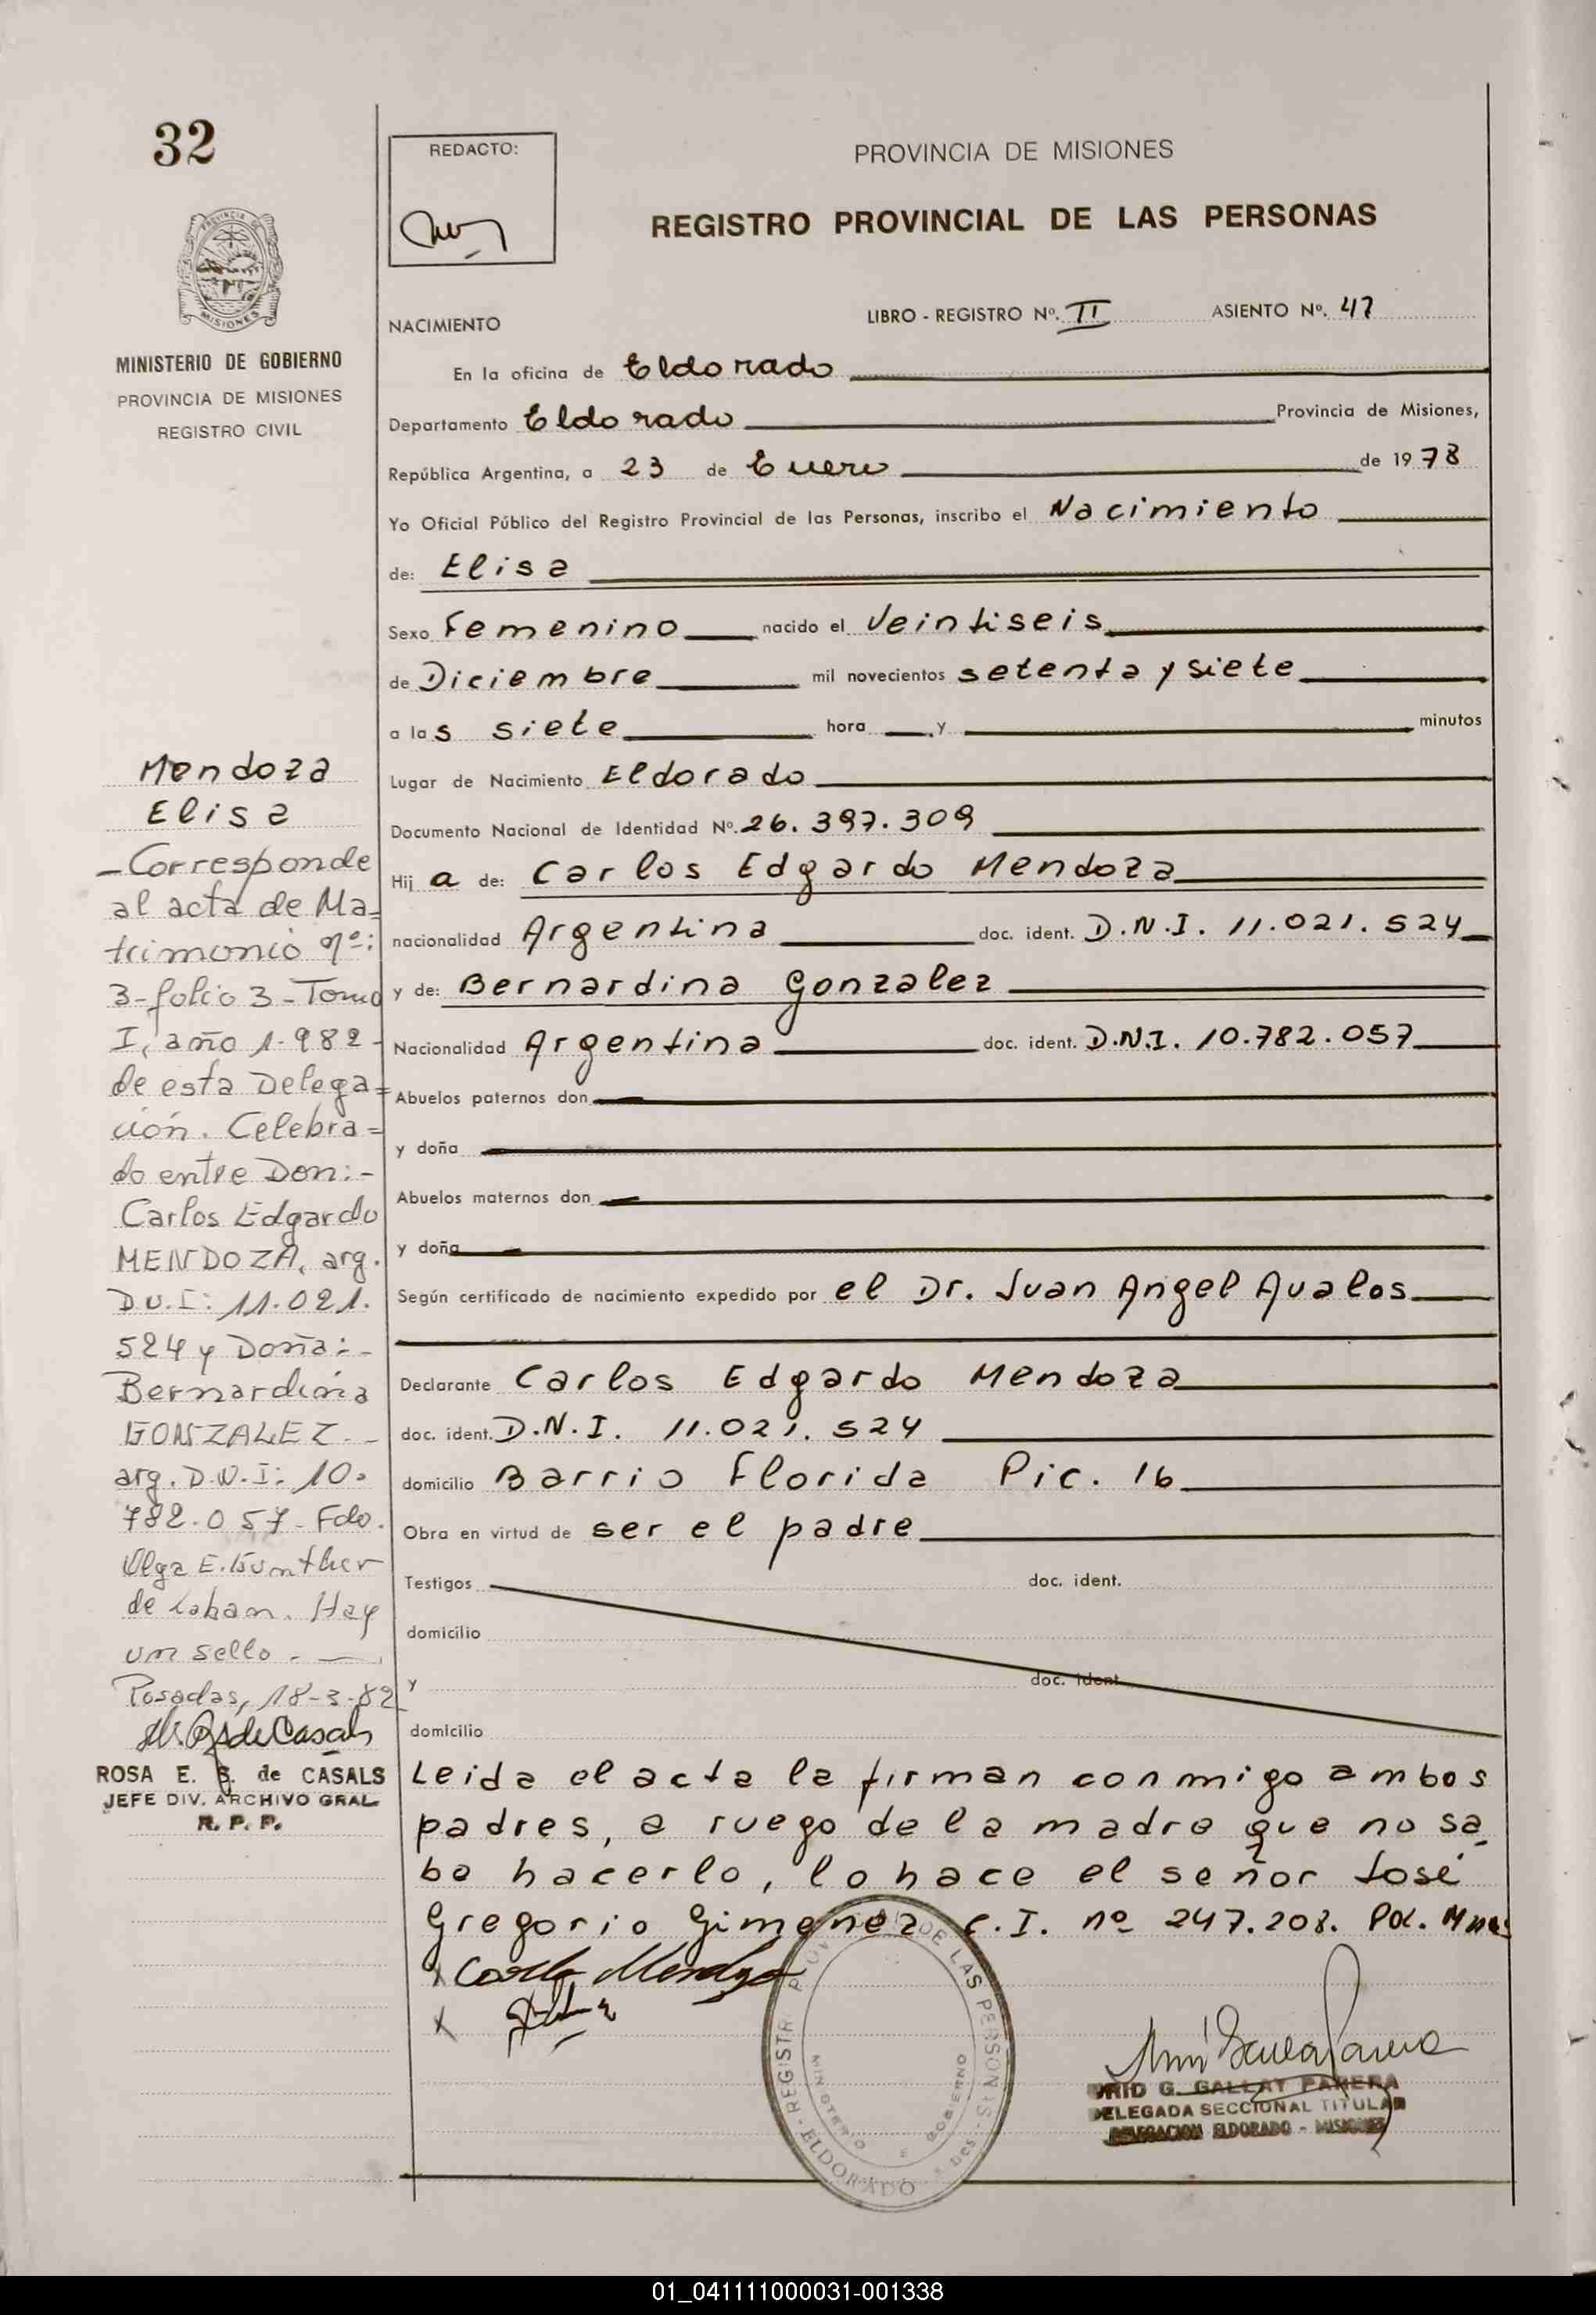 32
PROVINCIA DE
MISIONES
MINISTERIO DE GOBIERNO
PROVINCIA DE MISIONES
REGISTRO CIVIL
Mendoza
Elisa
- Corresponde
al acta de Ma=
trimonio nº:
3-folio 3-Tomo
I, año 1.982-
de esta Delega=
ción. Celebra=
do entre Don:-
Carlos Edgardo
MENDOZA, arg.
D.N.I: 11.021.
524 y Doña:-
Bernardina
GONZALEZ.-
arg. D.N.I: 10.
782.057- Fdo.
Olga E. Gunther
de Laban. Hay
un sello.-
Posadas, 18-3-82
ROSA E. S. de CASALS
JEFE DIV. ARCHIVO GRAL.
R. P. P.
REDACTO:
PROVINCIA DE MISIONES
REGISTRO PROVINCIAL DE LAS PERSONAS
LIBRO - REGISTRO Nº. II ASIENTO Nº. 47
NACIMIENTO
En la oficina de Eldorado
Departamento Eldorado Provincia de Misiones,
República Argentina, a 23 de Enero de 1978
Yo Oficial Público del Registro Provincial de las Personas, inscribo el Nacimiento
de: Elisa
Sexo Femenino nacido el Veintiseis
de Diciembre mil novecientos setenta y siete
a las siete hora y minutos
Lugar de Nacimiento Eldorado
Documento Nacional de Identidad Nº. 26.397.309
Hij a de: Carlos Edgardo Mendoza
nacionalidad Argentina doc. ident. D.N.I. 11.021.524
y de: Bernardina Gonzalez
Nacionalidad Argentina doc. ident. D.N.I. 10.782.057
Abuelos paternos don
y doña
Abuelos maternos don
y doña
Según certificado de nacimiento expedido por el Dr. Juan Angel Avalos
Declarante Carlos Edgardo Mendoza
doc. ident. D.N.I. 11.021.524
domicilio Barrio Florida Pic. 16
Obra en virtud de ser el padre
Testigos doc. ident.
domicilio
y doc. ident.
domicilio
Leida el acta la firman conmigo ambos
padres, a ruego de la madre que no sa
be hacerlo, lo hace el señor José
Gregorio Gimenez C.I. nº 247.208. Pol. Mnes
x Carlos Mendoza
x
REGISTRO PROVINCIAL DE LAS PERSONAS
MINISTERIO DE GOBIERNO
ELDORADO
G. GALLAY PANERA
DELEGADA SECCIONAL TITULAR
DELEGACION ELDORADO - MISIONES
01_041111000031-001338